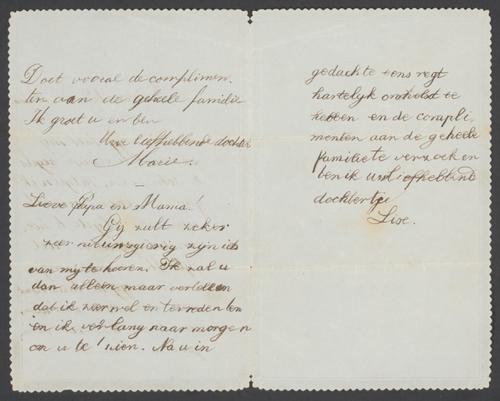 Doet vooral de complimen,
ten aan de geheele familie
Ik groet u en ben
Uwe liefhebbende dochter
Marie.
Lieve Papa en Mama.
Gij zult zeker
zeer nieuwsgierig zijn iets
van mij te hooren. Ik zal u
dan alleen maar vertellen
dat ik zeer wel en tevreden ben
en ik verlang naar morgen
om u te zien. Na u in
gedachte eens regt
hartelyk omhelst te
hebben en de compli
menten aan de geheele
familie te verzoeken
ben ik uw liefhebbend
dochtertje
Lise.